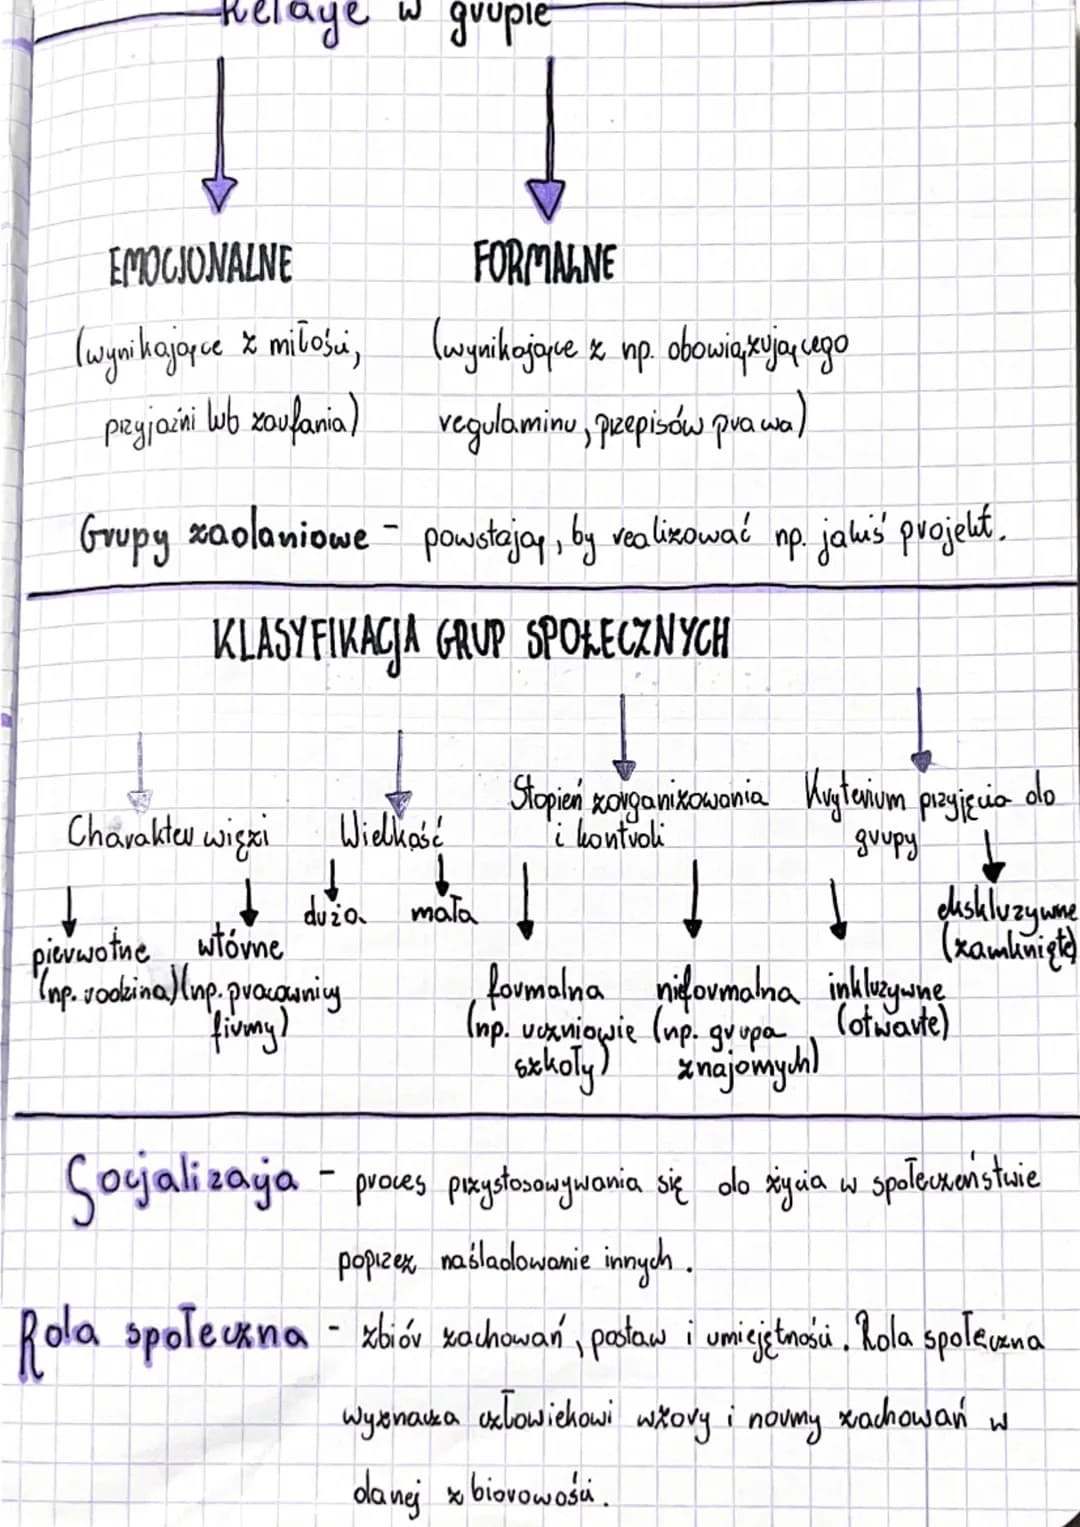 Relacje w grupie
EMOCJONALNE
FORMALNE
(wynikające z miłości,
przyjaźni lub zaufania)
(wynikające z np. obowiązującego
regulaminu, przepisów prawa)
Grupy zadaniowe - powstają, by realizować np. jakiś projekt.
KLASYFIKACJA GRUP SPOŁECZNYCH
Charakter więzi
Wielkość
Stopień zorganizowania
i kontroli
Kryterium przyjęcia do
grupy
pierwotne
(np. rodzina)
wtórne
(np. pracownicy
firmy)
duża
mała
formalna
(np. uczniowie
szkoły)
nieformalna
(np. grupa
znajomych)
inkluzywne
(otwarte)
ekskluzywne
(zamknięte)
Socjalizacja - proces przystosowywania się do życia w społeczeństwie
poprzez naśladowanie innych.
Rola społeczna - zbiór zachowań, postaw i umiejętności. Rola społeczna
wyznacza człowiekowi wzory i normy zachowań w
danej zbiorowości.